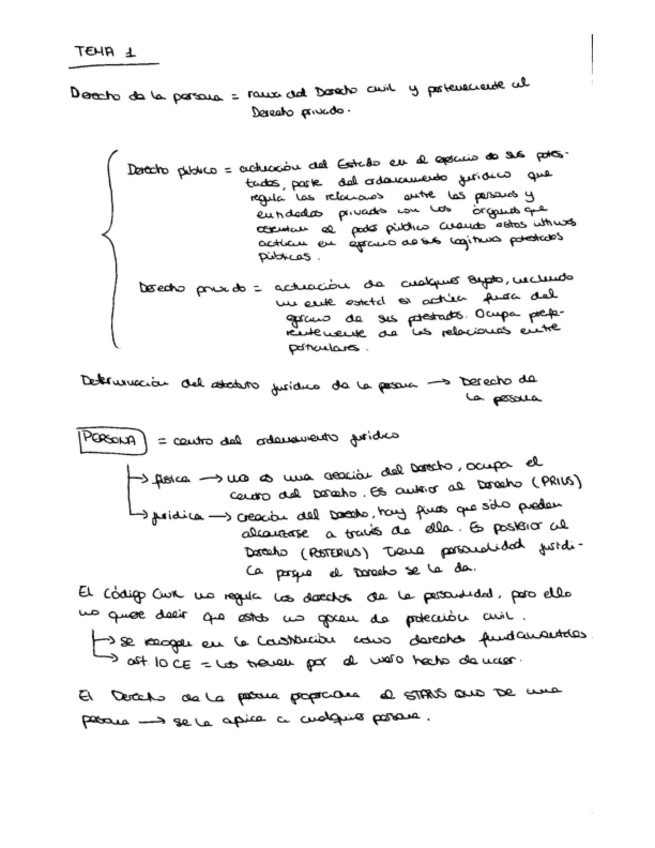 TEMA 1
Derecho de la persona = rama del Derecho civil y perteneciente al
Derecho privado.
Derecho público = actuación del Estado en el ejercicio de sus potes-
tades, parte del ordenamiento jurídico que
regula las relaciones entre las personas y
entidades privadas con los órganos que
ostentan el poder público cuando estos últimos
actúan en ejercicio de sus legítimas potestades
públicas.
Derecho privado = actuación de cualquier sujeto, incluido
un ente estatal si actúa fuera del
ejercicio de sus potestades. Ocupa prefe-
rentemente de las relaciones entre
particulares.
Determinación del estatuto jurídico de la persona → Derecho de
la persona
PERSONA = centro del ordenamiento jurídico
→ física → no es una creación del Derecho, ocupa el
centro del Derecho. Es anterior al Derecho (PRIUS)
→ jurídica → creación del Derecho, hay fines que sólo pueden
alcanzarse a través de ella. Es posterior al
Derecho (POSTERIUS) Tiene personalidad jurídi-
ca porque el Derecho se la da.
El Código Civil no regula los derechos de la personalidad, pero ello
no quiere decir que estos no gocen de protección civil.
→ se recogen en la Constitución como derechos fundamentales.
→ art. 10 CE = los tienen por el mero hecho de nacer.
El Derecho de la persona proporciona el STATUS QUO DE una
persona → se le aplica a cualquier persona.